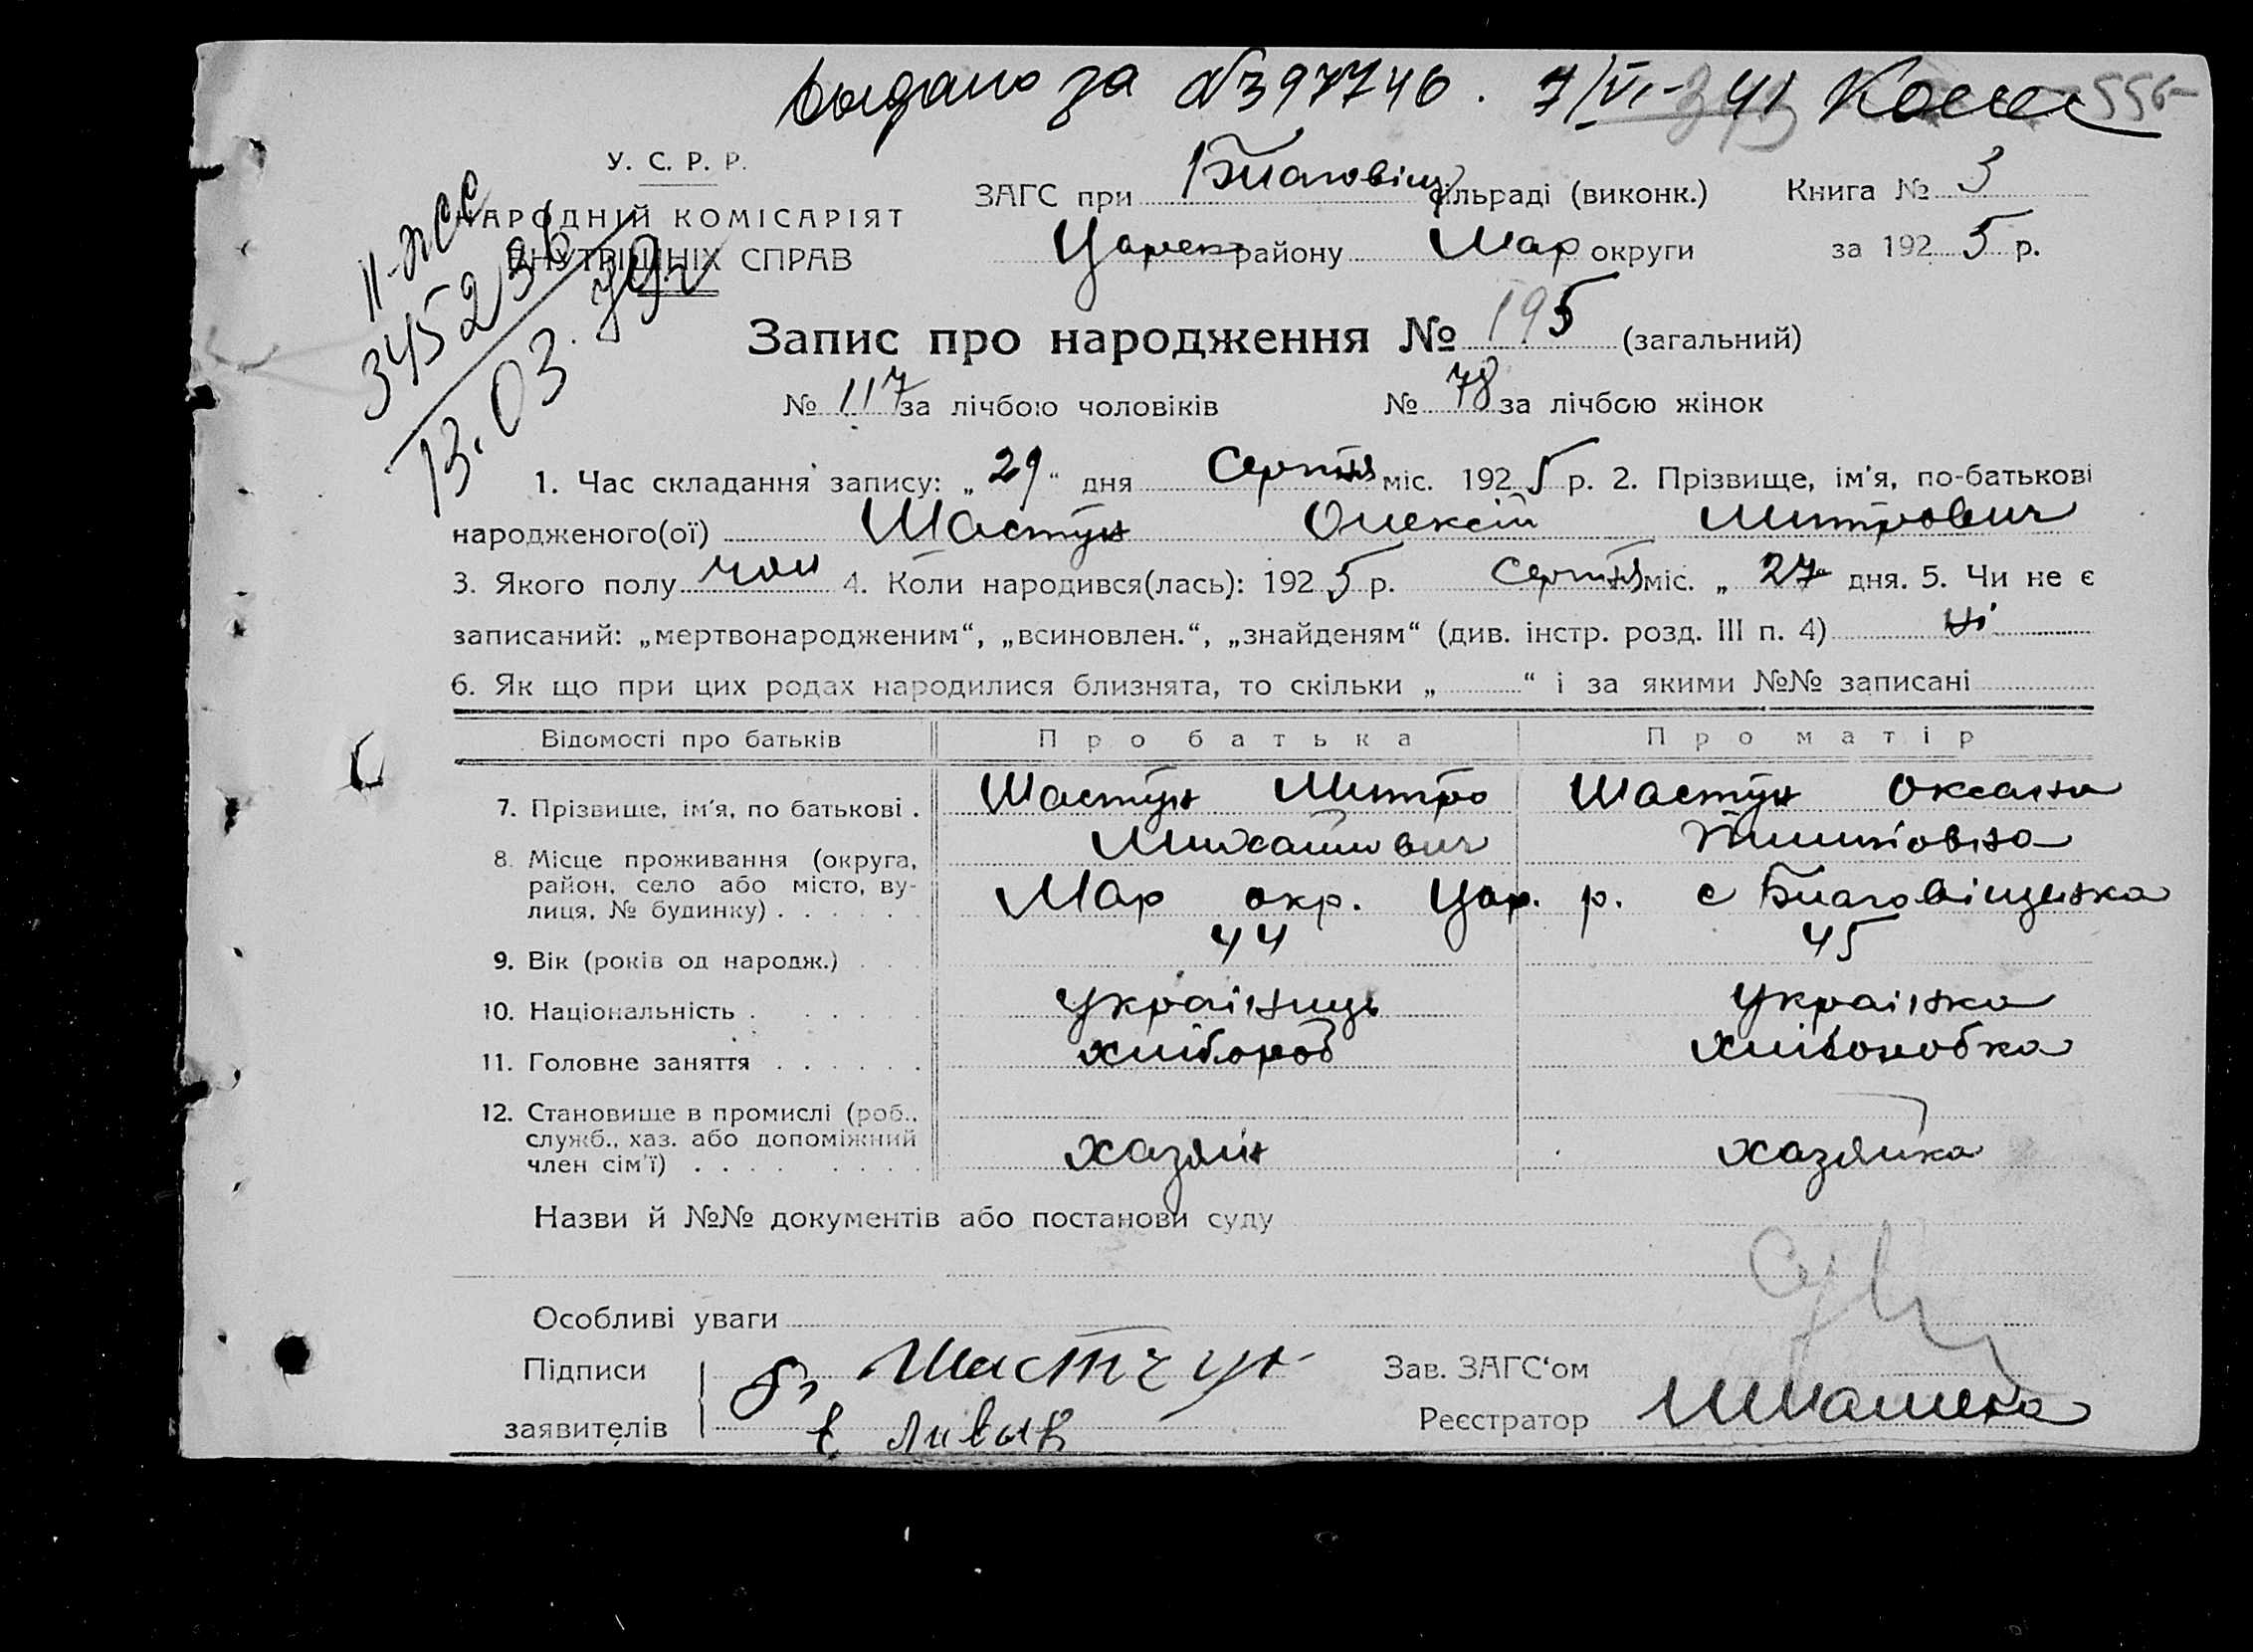 выдано за №397746. 7/VI-41
556
343
У. С. Р. Р.
НАРОДНІЙ КОМІСАРІЯТ
ВНУТРІШНІХ СПРАВ
II-ЖС
345236
13.03.79г
ЗАГС при Благовіщ сільраді (виконк.) Книга № 3
Царек району Мар округи за 1925 р.
Запис про народження № 195 (загальний)
№ 117 за лічбою чоловіків № 78 за лічбою жінок
1. Час складання запису: „29“ дня Серпня міс. 1925 р. 2. Прізвище, ім'я, по-батькові
народженого(ої) Шастун Олексій Митрович
3. Якого полу чол 4. Коли народився(лась): 1925 р. Серпня міс. „27“ дня. 5. Чи не є
записаний: „мертвонародженим“, „всиновлен.“, „знайденям“ (див. інстр. розд. III п. 4) ні
6. Як що при цих родах народилися близнята, то скільки „ “ і за якими №№ записані
Відомості про батьків Про батька Про матір
7. Прізвище, ім'я, по батькові . Шастун Митро Михайлович Шастун Оксана
8. Місце проживання (округа, район, село або місто, вулиця, № будинку) . . . . . . Мар окр. Цар. р. с Благовіщенка
9. Вік (років од народж.) . . . 44 45
10. Національність . . . . . . українець українка
11. Головне заняття . . . . . . хлібороб хліборобка
12. Становище в промислі (роб., служб., хаз. або допоміжний член сім'ї) . . . . . . . . хазяїн хазяйка
Назви й №№ документів або постанови суду
Особливі уваги
Підписи Шастун Зав. ЗАГС'ом
заявителів Реєстратор